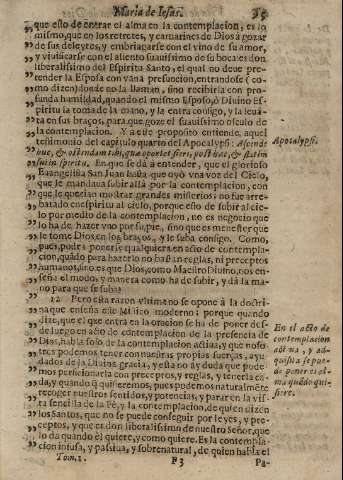 Maria de Iesus. 85
que esto de entrar el alma en la contemplacion, es lo
mismo, que en los retretes, y camarines de Dios à gozar
de sus deleytes, y embriagarse con el vino de su amor,
y viuificarse con el aliento suauissimo de su boca: es don
liberalissimo del Espiritu Santo, el qual no deue pretender la Esposa con vana presuncion, entrandose (co
mo dizen) donde no la llaman, sino recibirla con profunda humildad, quando el mismo Esposo, ò Diuino Espiritu la toma de la mano, y la entra consigo, y la leuanta en sus braços, para que goze el suauissimo osculo de
la contemplacion. Y à este proposito entiende, aquel
testimonio del capitulo quarto del Apocalypsi: Ascende
huc, & ostendam tibi, quæ oportet fieri, post hæc, & statim
fui in spiritu. En que se dà à entender, que el glorioso
Euangelista San Iuan hasta que oyò vna voz del Cielo,
que le mandaua subir allà por la contemplacion, con
que le querian mostrar grandes misterios; no fue arrebatado en espiritu al cielo, porque esto de subir al cielo por medio de la contemplacion, no es negocio que
lo ha de hazer vno por su pie, sino que es menester que
le tome Dios en los braços, y le suba consigo. Como,
pues, podrà ponerse qualquiera en acto de contemplacion, quãdo para hazerlo no bastan reglas, ni preceptos
humanos, sino es que Dios, como Maestro Diuino, nos enseña el modo, y manera como ha de subir, y dà la mano para que se suba?
12 Pero esta razon vltima no se opone à la doctrina que enseña este Mistico moderno; porque quando
dize, que el que entra en la oracion se ha de poner desde luego en acto de contemplacion de la presencia de
Dios, habla solo de la contemplacion actiua; y que nosotros podemos tener con nuestras propias fuerças, ayudados de la Diuina gracia, y esta no ay duda que podemos perficionarla con preceptos, y reglas, y tenerla entera, y quando quisieremos, pues podemos naturalmẽte
recoger nuestros sentidos, y potencias, y parar en la vista senzilla de la Fè, y la contemplacion, de quien dizen
los Santos, que no se puede conseguir por leyes, y preceptos, y que es don liberalissimo de nuestro Señor, que
lo da quando èl quiere, y como quiere. Es la contemplacion infusa, y passiua, y sobrenatural, de quien habla el
Tom. 1. F 3 Pa-
Apocalypsi.
En el acto de
contemplacion
actiua, y adquisita se puede poner el alma quãdo quisiere.